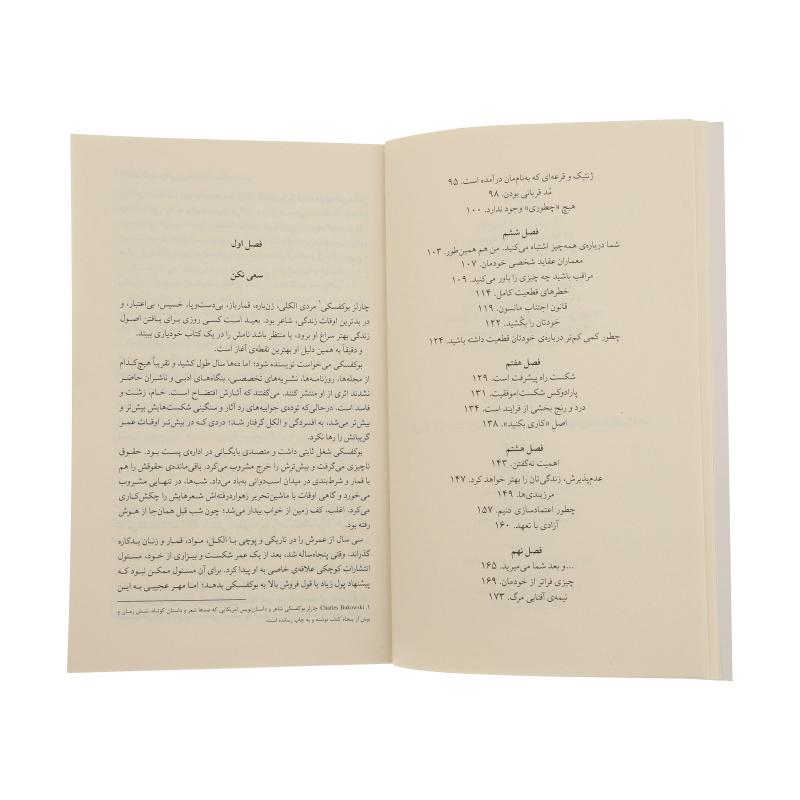 ژنتیک و قرعه‌ای که به‌نام‌مان درآمده است. ۹۵
مُد قربانی بودن. ۹۸
هیچ «چطوری» وجود ندارد. ۱۰۰
فصل ششم
شما درباره‌ی همه‌چیز اشتباه می‌کنید. من هم همین‌طور. ۱۰۳
معماران عقاید شخصی خودمان. ۱۰۷
مراقب باشید چه چیزی را باور می‌کنید. ۱۰۹
خطرهای قطعیت کامل. ۱۱۴
قانون اجتناب مانسون. ۱۱۹
خودتان را بکُشید. ۱۲۲
چطور کمی کم‌تر درباره‌ی خودتان قطعیت داشته باشید. ۱۲۴
فصل هفتم
شکست راه پیشرفت است. ۱۲۹
پارادوکس شکست/موفقیت. ۱۳۱
درد و رنج بخشی از فرایند است. ۱۳۴
اصلِ «کاری بکنید». ۱۳۸
فصل هشتم
اهمیت نه‌گفتن. ۱۴۳
عدم‌پذیرش، زندگی‌تان را بهتر خواهد کرد. ۱۴۷
مرزبندی‌ها. ۱۴۹
چطور اعتمادسازی کنیم. ۱۵۷
آزادی با تعهد. ۱۶۰
فصل نهم
...و بعد شما می‌میرید. ۱۶۵
چیزی فراتر از خودمان. ۱۶۹
نیمه‌ی آفتابی مرگ. ۱۷۳
فصل اول
سعی نکن
چارلز بوکفسکی۱ مردی الکلی، زن‌باره، قمارباز، بی‌دست‌وپا، خسیس، بی‌اعتبار، و
در بدترین اوقات زندگی، شاعر بود. بعید است کسی روزی برای یافتن اصول
زندگی بهتر سراغ او برود، یا منتظر باشد نامش را در یک کتاب خودیاری ببیند.
و دقیقاً به همین دلیل او بهترین نقطه‌ی آغاز است.
بوکفسکی می‌خواست نویسنده شود؛ اما ده‌ها سال طول کشید و تقریباً هیچ‌کدام
از مجله‌ها، روزنامه‌ها، نشریه‌های تخصصی، بنگاه‌های ادبی و ناشران حاضر
نشدند اثری از او منتشر کنند. می‌گفتند که آثارش افتضاح است. خام، زشت و
فاسد است. درحالی‌که توده‌ی جوابیه‌های رد آثار و سنگینی شکست‌هایش بیش‌تر و
بیش‌تر می‌شد، به افسردگی و الکل گرفتار شد؛ دردی که در بیش‌تر اوقات عمر
گریبانش را رها نکرد.
بوکفسکی شغل ثابتی داشت و متصدی بایگانی در اداره‌ی پست بود. حقوق
ناچیزی می‌گرفت و بیش‌ترش را خرج مشروب می‌کرد. باقی‌مانده‌ی حقوقش را هم
با قمار و شرط‌بندی در میدان اسب‌دوانی به‌باد می‌داد. شب‌ها، در تنهایی مشروب
می‌خورد و گاهی اوقات با ماشین‌تحریر زهواردررفته‌اش شعرهایش را چکش‌کاری
می‌کرد. اغلب، کف زمین از خواب بیدار می‌شد؛ چون شب قبل همان‌جا از هوش
رفته بود.
سی سال از عمرش را در تاریکی و پوچی با الکل، مواد، قمار و زنان بدکاره
گذراند. وقتی پنجاه‌ساله شد، بعد از یک عمر شکست و بیزاری از خود، مسئول
انتشارات کوچکی علاقه‌ی خاصی به او پیدا کرد. برای آن مسئول ممکن نبود که
پیشنهاد پول زیاد یا قول فروش بالا به بوکفسکی بدهد؛ اما مهر عجیبی به این
۱. Charles Bukowski: چارلز بوکفسکی شاعر و داستان‌نویس امریکایی که صدها شعر و داستان کوتاه، شش رمان و
بیش از پنجاه کتاب نوشته و به چاپ رسانده است.